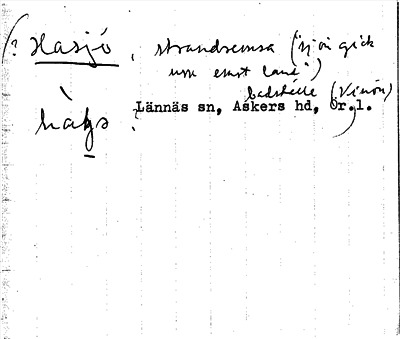 (? Hasjö, strandremsa ("sjön gick
upp emot land")
badställe (Vinön)
Lännäs sn, Askers hd, Ör.l.